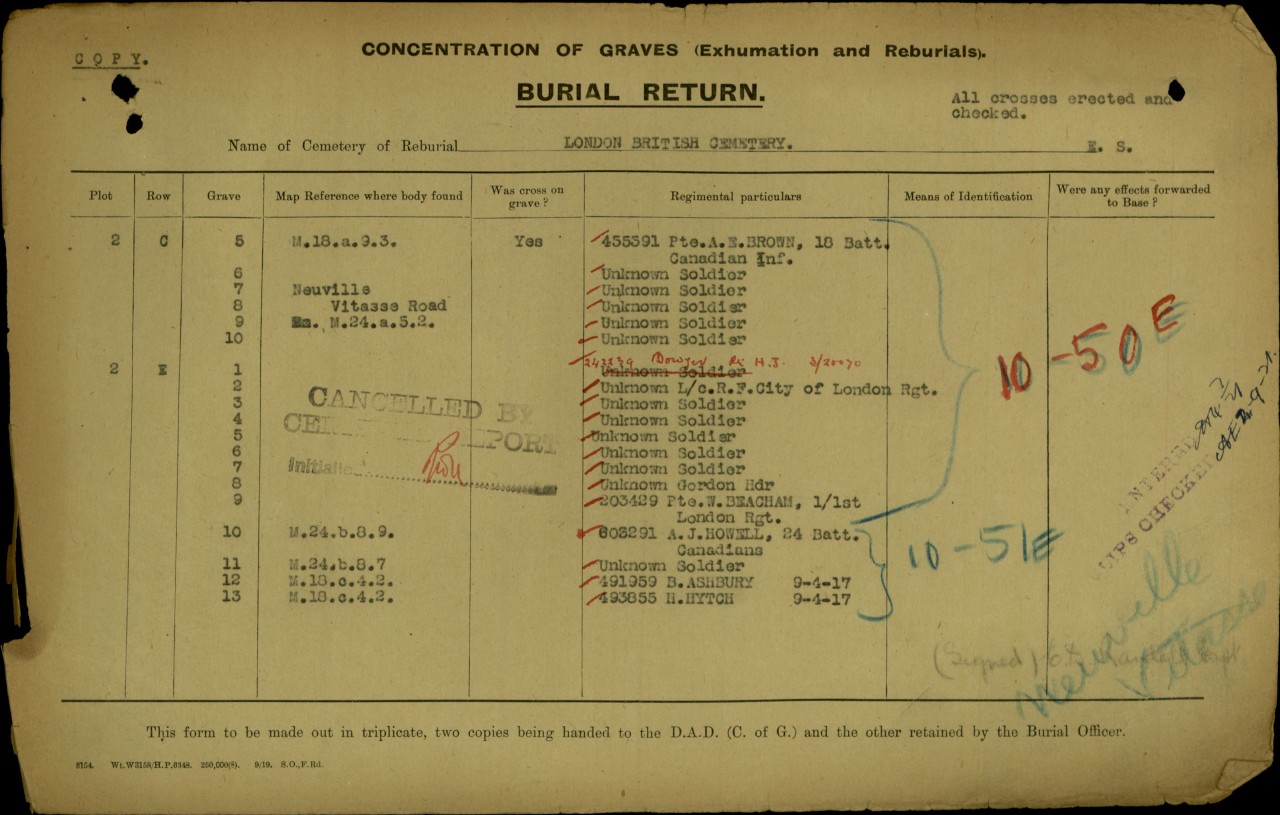 COPY.
CONCENTRATION OF GRAVES (Exhumation and Reburials).
BURIAL RETURN.
All crosses erected and
checked.
Name of Cemetery of Reburial LONDON BRITISH CEMETERY. E. S.
Plot Row Grave Map Reference where body found Was cross on grave? Regimental particulars Means of Identification Were any effects forwarded to Base?
2 C 5 M.18.a.9.3. Yes 455391 Pte.A.E.BROWN, 18 Batt.
Canadian Inf.
6 Unknown Soldier
7 Neuville Unknown Soldier
8 Vitasse Road Unknown Soldier
9 M.24.a.5.2. Unknown Soldier
10 Unknown Soldier
H.J. 3/20070
2 E 1 Unknown Soldier
2 Unknown L/c.R.F.City of London Rgt.
3 Unknown Soldier
4 Unknown Soldier
5 Unknown Soldier
6 Unknown Soldier
7 Unknown Soldier
8 Unknown Gordon Hdr
9 203429 Pte.W.BEACHAM, 1/1st
London Rgt.
10 M.24.b.8.9. 603291 A.J.HOWELL, 24 Batt.
Canadians
11 M.24.b.8.7 Unknown Soldier
12 M.18.c.4.2. 491959 B.ASHBURY 9-4-17
13 M.18.c.4.2. 493855 H.HYTCH 9-4-17
CANCELLED BY
Initialled
10-50E
10-51E
ENTERED
SLIPS CHECKED
Neuville
Vitasse
(Signed)
This form to be made out in triplicate, two copies being handed to the D.A.D. (C. of G.) and the other retained by the Burial Officer.
8154. Wt.W3158/H.P.6348. 250,000(8). 9/19. S.O.,F.Rd.